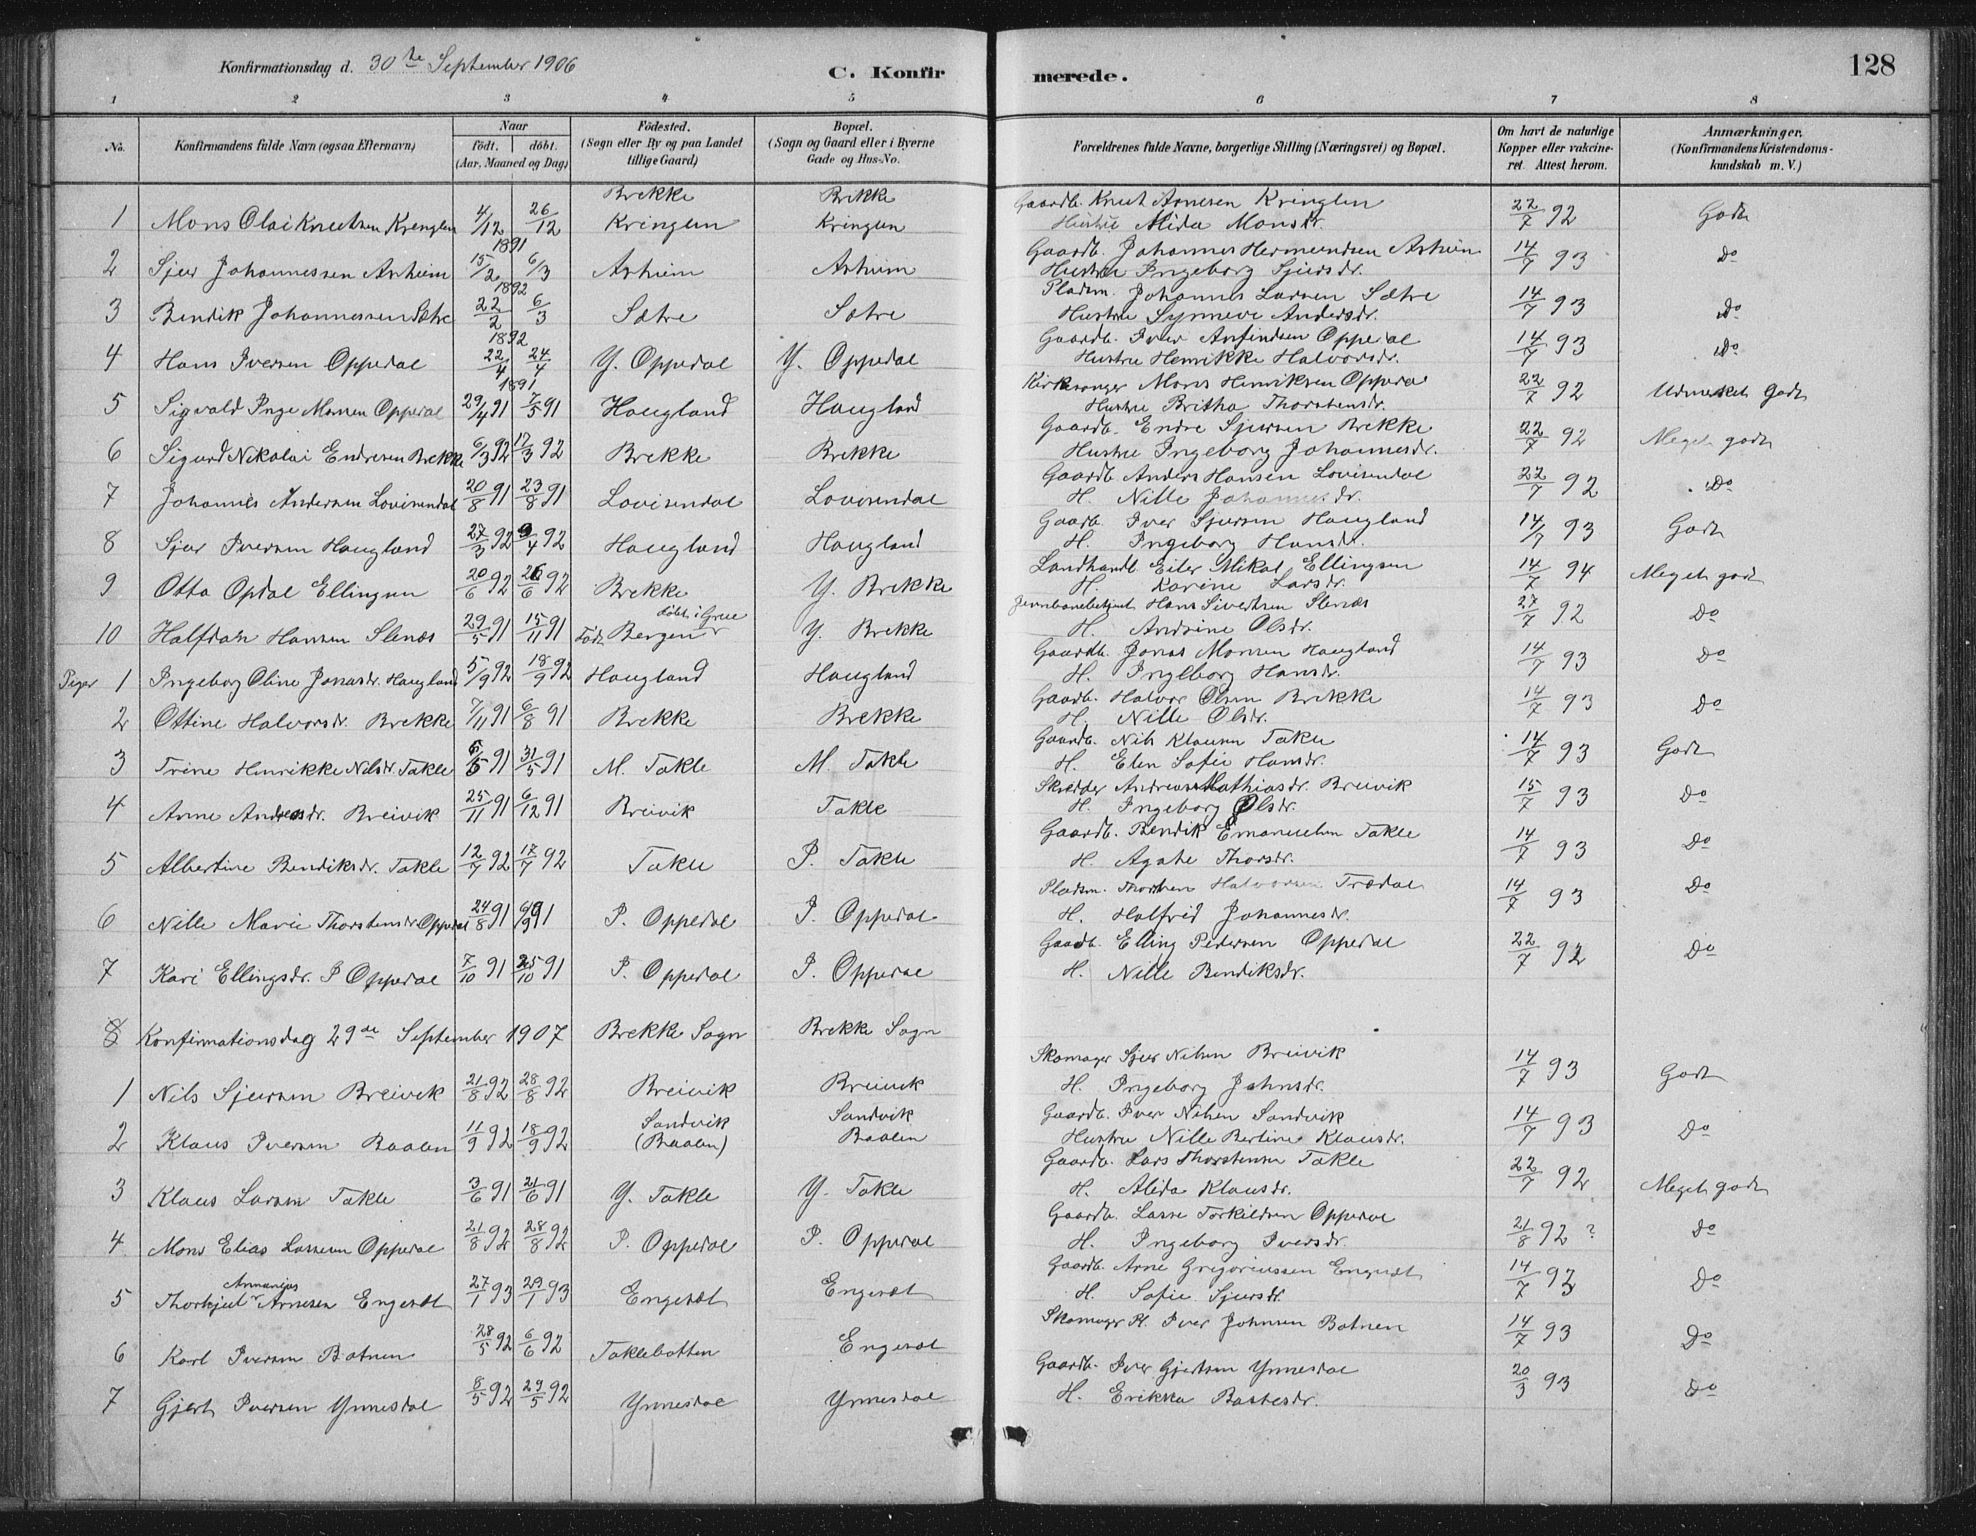 Konfirmationsdag d. 30te September 1906
C. Konfirmerede.
128
1 2 3 4 5 6 7 8
No.
Konfirmandens fulde Navn (ogsaa Efternavn)
Naar
født. døbt.
(Aar, Maaned og Dag)
Fødested.
(Sogn eller By og paa Landet
tillige Gaard)
Bopæl.
(Sogn og Gaard eller i Byerne
Gade og Hus-No.
Forældrenes fulde Navne, borgerlige Stilling (Næringsvei) og Bopæl.
Om havt de naturlige
Kopper eller vakcine-
ret. Attest herom.
Anmærkninger.
(Konfirmandens Kristendoms-
kundskab m. V.)
Brekke Brekke Gaardb. Knut Arnesen Kringlen
1 Mons Olai Knutsen Kringlen 4/12 26/12 1891 Kringlen Kringlen Hustru Alida Monsdr. 22/7 92 Godt
Gaardb. Johannes Hermundsen Asheim
2 Sjur Johannessen Asheim 15/2 6/3 1892 Asheim Asheim Hustru Ingeborg Sjursdr. 14/7 93 Do
Pladsm. Johannes Larsen Sætre
3 Bendik Johannessen Sætre 22/2 6/3 1892 Sætre Sætre Hustru Synneve Andersdr. 14/7 93 Do
Gaardb. Iver Anfindsen Oppedal
4 Hans Iversen Oppedal 22/4 24/4 1891 Y. Oppedal Y. Oppedal Hustru Henrikke Halvorsdr. 14/7 93 Do
Kirkesanger Mons Henriksen Oppedal
5 Sigvald Inge Monsen Oppedal 29/4 91 7/5 91 Haugland Haugland Hustru Britha Thorstensdr. 22/7 92 Udmerket godt
Gaardb. Endre Sjursen Brekke
6 Sigurd Nikolai Endresen Brekke 6/3 92 17/3 92 Brekke Brekke Hustru Ingeborg Johannesdr. 22/7 92 Meget godt
Gaardb. Anders Hansen Lovisendal
7 Johannes Andersen Lovisendal 20/8 91 23/8 91 Lovisendal Lovisendal H. Nille Johannesdr. 22/7 92 Do
Gaardb. Iver Sjursen Haugland
8 Sjur Iversen Haugland 27/3 92 9/4 92 Haugland Haugland H. Ingeborg Hansdr. 14/7 93 Godt
Landhandl. Eiler Mikal Ellingsen
9 Otto Opdal Ellingsen 20/6 92 26/6 92 Brekke Y. Brekke H. Karine Larsdr. 14/7 94 Meget godt
døbt i Grue Jernbanebetjent Hans Sivertsen Slenæs
10 Halfdan Hansen Slenæs 29/5 91 15/11 91 Født Bergen Y. Brekke H. Andrine Olsdr. 27/7 92 Do
Gaardb. Jonas Monsen Haugland
Piger 1 Ingeborg Oline Jonasdr. Haugland 5/9 92 18/9 92 Haugland Haugland H. Ingeborg Hansdr. 14/7 93 Do
Gaardb. Halvor Olsen Brekke
2 Ottine Halvorsdr. Brekke 7/11 91 6/8 91 Brekke Brekke H. Nille Olsdr. 14/7 93 Do
Gaardb. Nils Klausen Takle
3 Trine Henrikke Nilsdr. Takle 5/5 91 31/5 91 M. Takle M. Takle H. Elen Sofie Hansdr. 14/7 93 Godt
Skrædder Andreas Mathiasdr. Breivik
4 Anne Andreasdr. Breivik 25/11 91 6/12 91 Breivik Takle H. Ingeborg Olsdr. 15/7 93 Do
Gaardb. Bendik Emanuelsen Takle
5 Albertine Bendiksdr. Takle 12/7 92 17/7 92 Takle P. Takle H. Agate Thorsdr. 14/7 93 Do
Pladsm. Thorsten Halvorsen Trædal
6 Nille Marie Thorstensdr. Oppedal 24/8 91 6/9 91 P. Oppedal P. Oppedal H. Halfrid Johannesdr. 14/7 93 Do
Gaardb. Elling Pedersen Oppedal
7 Kari Ellingsdr. P Oppedal 7/10 91 25/10 91 P. Oppedal P. Oppedal H. Nille Bendiksdr. 22/7 92 Do
8 Konfirmationsdag 29de September 1907 Brekke Sogn Brekke Sogn
Skomager Sjur Nilsen Breivik
1 Nils Sjursen Breivik 21/8 92 28/8 92 Breivik Breivik H. Ingeborg Johnsdr. 14/7 93 Godt
Sandvik Sandvik Gaardb. Iver Nilsen Sandvik
2 Klaus Iversen Baalen 11/9 92 18/9 92 (Baalen) Baalen Hustru Nille Berline Klausdr. 14/7 93 Do
Gaardb. Lars Thorstensen Takle
3 Klaus Larsen Takle 3/6 91 21/6 91 Y. Takle Y. Takle H. Alida Klausdr. 22/7 92 Meget godt
Gaardb. Lasse Torkildsen Oppedal
4 Mons Elias Lassesen Oppedal 21/8 92 28/8 92 P. Oppedal P. Oppedal H. Ingeborg Iversdr. 21/8 92 ? Do
Gaardb. Arne Gregoriussen Engesæt
5 Thorkjel Arnesen Engesæt 27/1 93 29/1 93 Engesæt Engesæt H. Sofie Sjursdr. 14/7 93 Do
Skomager H. Iver Johnsen Botnen
6 Karl Iversen Botnen 28/5 92 6/6 92 Taklebotten Engesæt 14/7 93 Do
Gaardb. Iver Gjertsen Ynnesdal
7 Gjert Iversen Ynnesdal 8/5 92 29/5 92 Ynnesdal Ynnesdal H. Erikka Bastesdr. 20/3 93 Do